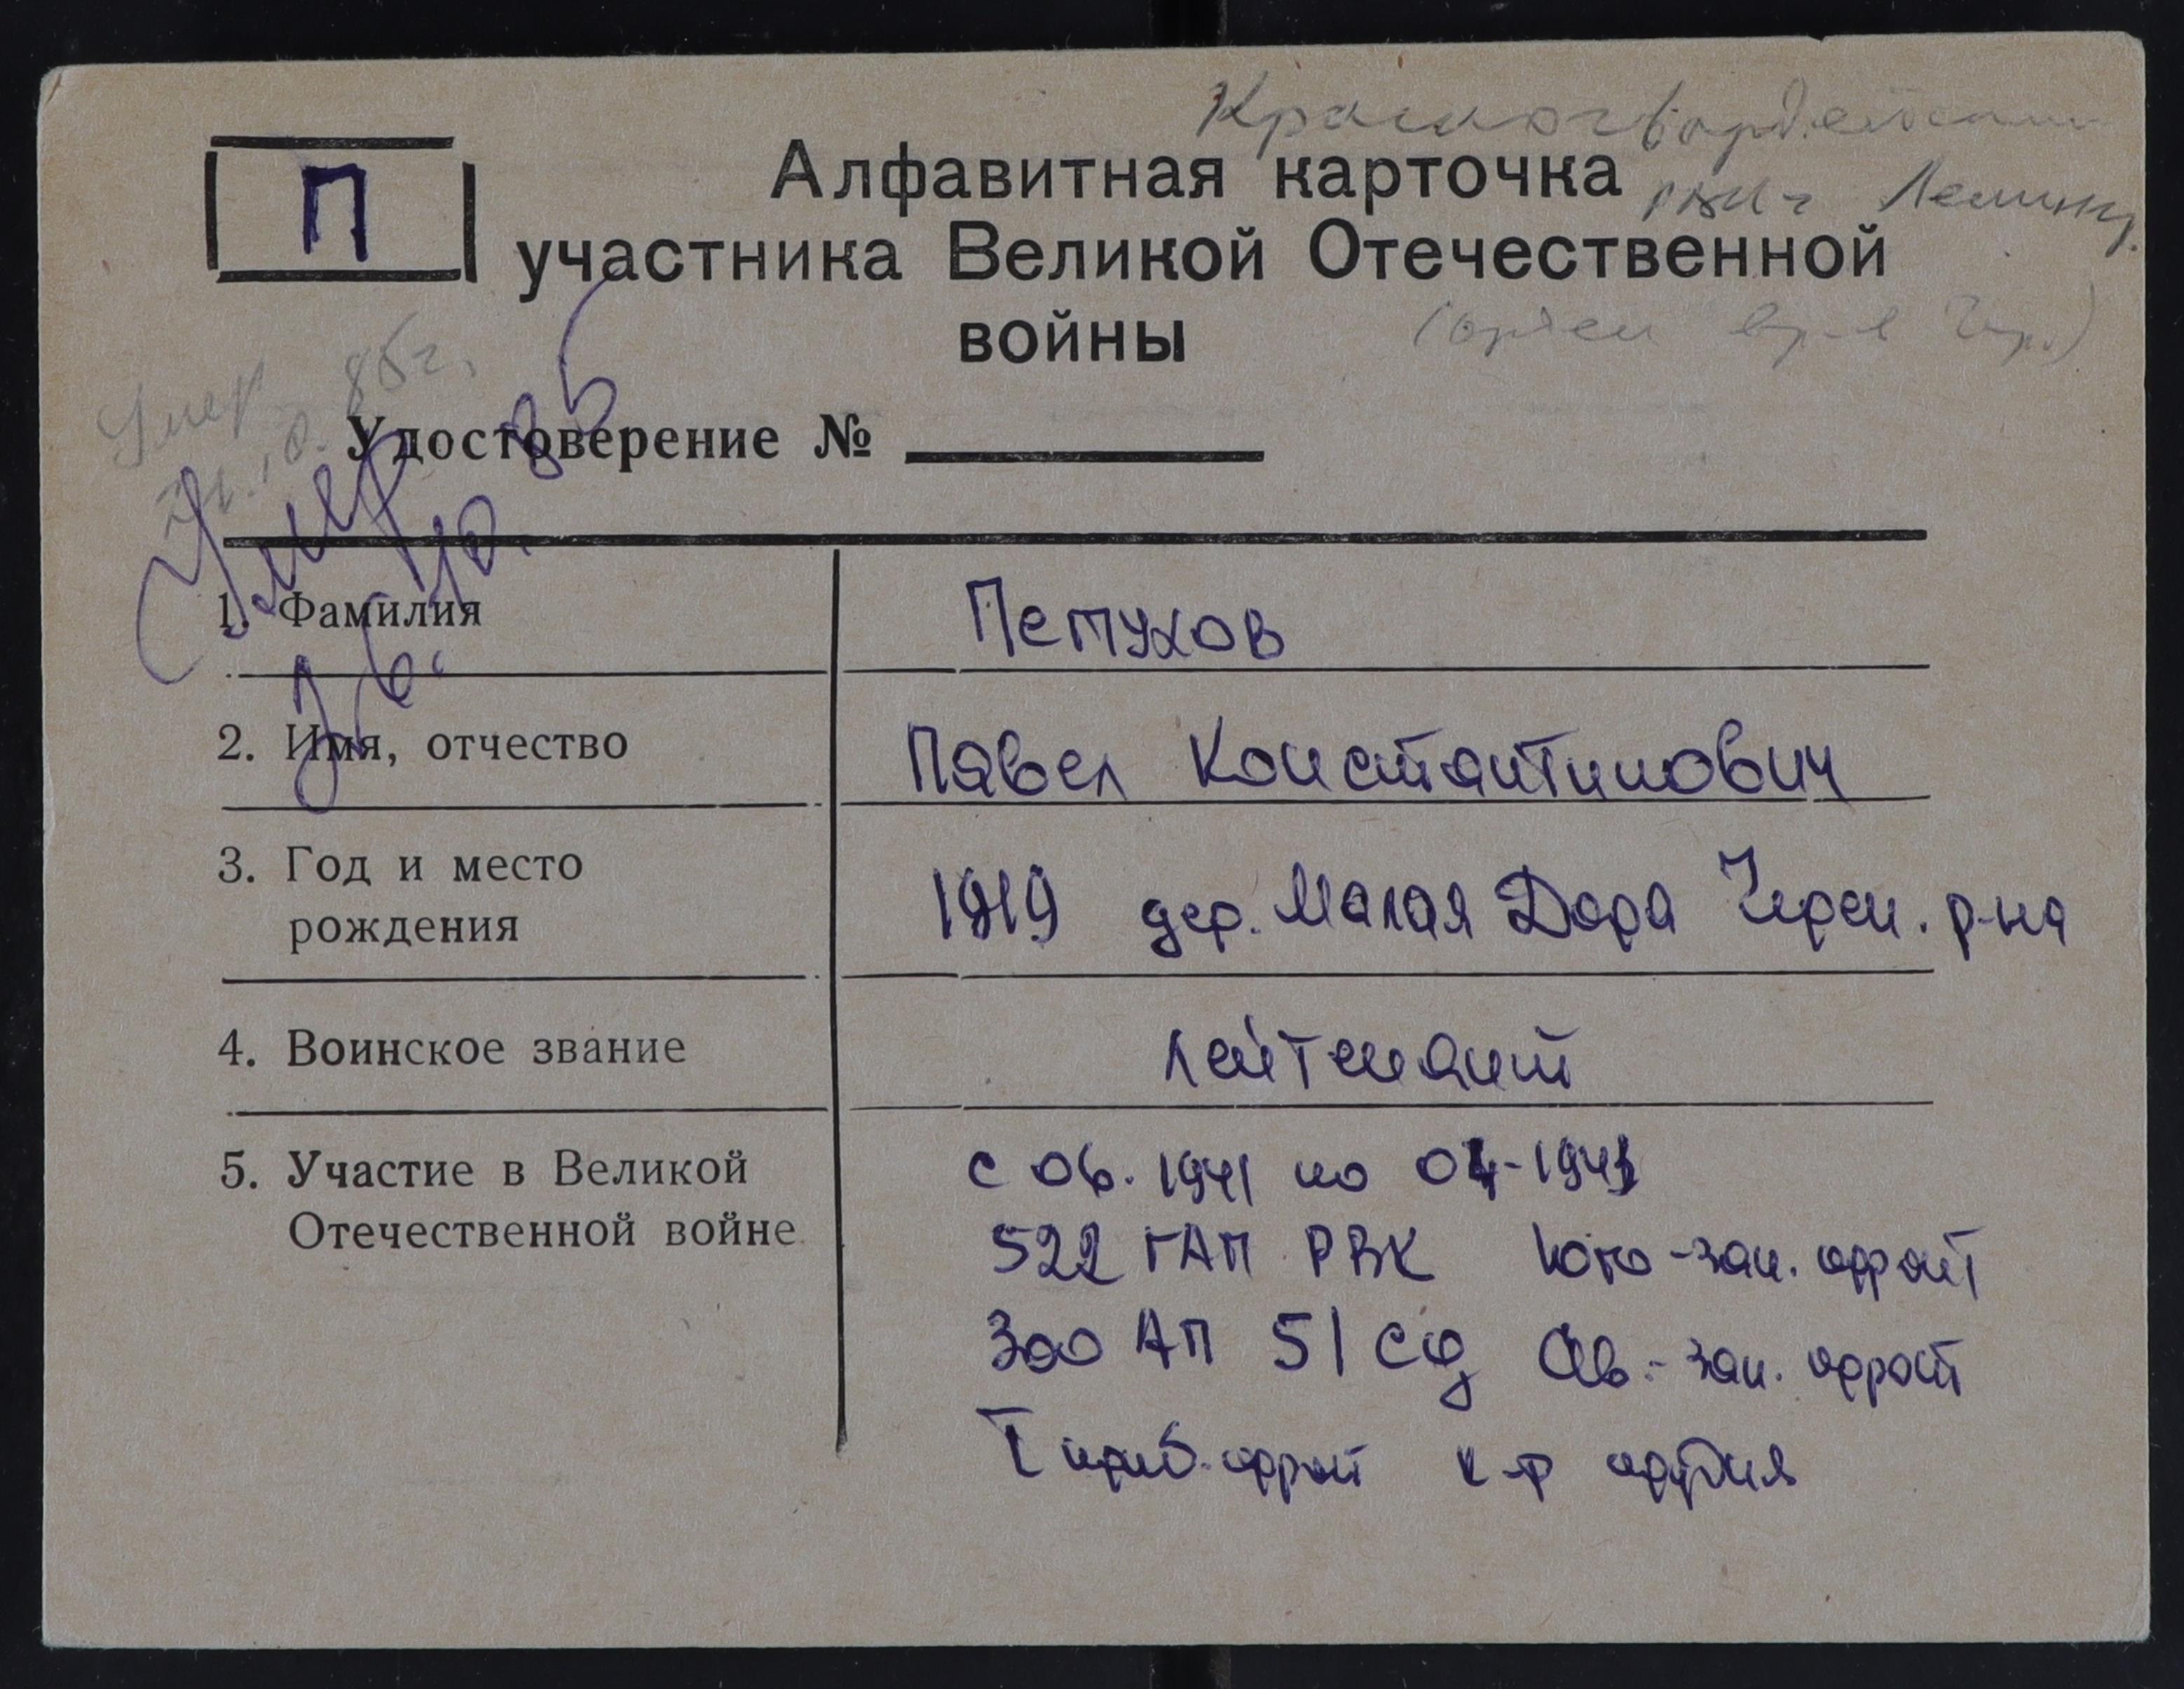 Красногвардейский
РВК г Ленингр.
П
Алфавитная карточка
участника Великой Отечественной
войны
Умер 85г.
Удостоверение № ____
Умер
26.10.85
1. Фамилия Петухов
2. Имя, отчество Павел Константинович
3. Год и место
рождения 1919 дер. Малая Дора Череп. р-на
4. Воинское звание лейтенант
5. Участие в Великой
Отечественной войне
с 06.1941 по
522 ГАП РВК Юго-зап. фронт
300 АП 51 сд Св.-зап. фронт
I приб. фронт к-р орудия